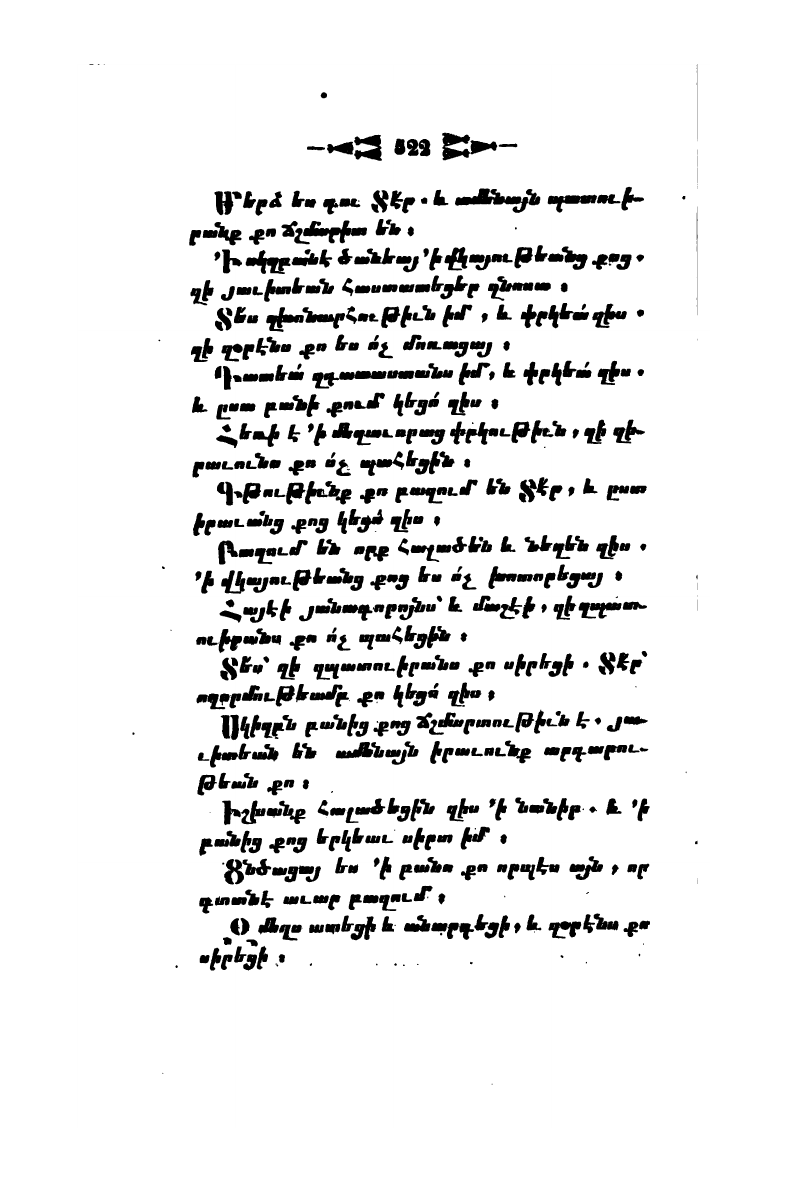 522
Մերձ ես դու Տէր. և ամենայն պատուի-
րանք քո ճշմարիտ են ։
՚Ի սկզբանէ ծանեայ ՚ի վկայութեանց քոց.
զի յաւիտեան հաստատեցեր զնոսա ։
Տես զխոնարհութիւն իմ , և փրկեա՛ զիս .
զի զօրէնս քո ես ո՛չ մոռացայ ։
Դատեա՛ զդատաստանս իմ, և փրկեա՛ զիս.
և ըստ բանի քում կեցո՛ զիս ։
Հեռի է ՚ի մեղաւորաց փրկութիւն , զի զի-
րաւունս քո ո՛չ պահեցին ։
Գթութիւնք քո բազում են Տէր , և ըստ
իրաւանց քոց կեցո՛ զիս ։
Բազում են որք հալածեն և նեղեն զիս .
՚ի վկայութեանց քոց ես ո՛չ խոտորեցայ ։
Հայէի յանագորոյնս՝ և մաշէի , զի զպատ-
ուիրանս քո ո՛չ պահեցին ։
Տե՛ս՝ զի զպատուիրանս քո սիրեցի . Տէր՝
ողորմութեամբ քո կեցո՛ զիս ։
Սկիզբն բանից քոց ճշմարտութիւն է. յա-
ւիտեան են ամենայն իրաւունք արդարու-
թեան քո ։
Իշխանք հալածեցին զիս ՚ի նանիր . և ՚ի
բանից քոց երկեաւ սիրտ իմ ։
Ցնծացայ ես ՚ի բանս քո որպէս այն , որ
գտանէ աւար բազում ։
Զ մեղս ատեցի և անարգեցի, և զօրէնս քո
սիրեցի ։